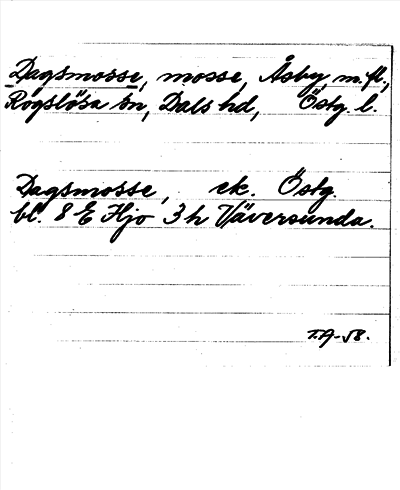 Dagsmosse, mosse, Åsby m.fl.,
Rogslösa sn, Dals hd, Östg. l.
Dagsmosse, ek. Östg.
bl. 8 E Hjo 3 h Väversunda.
T.A-58.